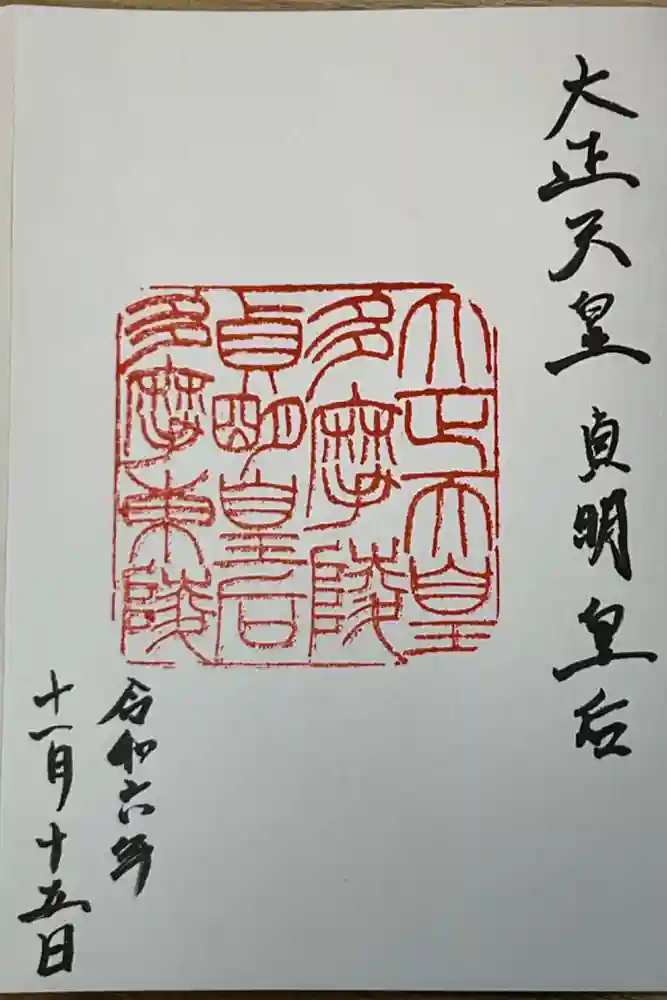 大正天皇 貞明皇后
大正天皇
多摩陵
貞明皇后
多摩東陵
令和六年
十一月十五日